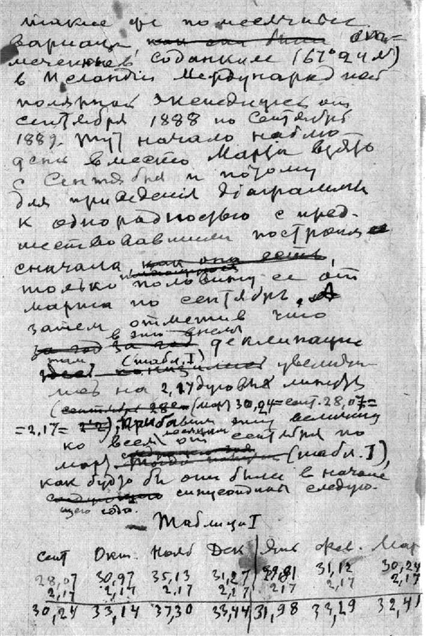 такие же помесячныя
вариации, как они были отме=
меченные, Соданкиле (67°24' N)
в Исландiи Международной
полярной экспедицiей от
сентября 1888 по Сентябрь
1889. Тут начало наблю-
дения вместо Марта взято
с Сентября и потому
для приведенiя дiаграммы
к однородностью с пред-
шествовавшими построена
сначала, как она есть,
только половина ее от
марта по сентябрь, А
затем отметив что
за год в это время деклинация
там (табл. I) увеличи-
лась на 2,17 дуговых минут
(март 30,24 = сент. 28,07 =
= 2,17 = прибавим эту величину
ко всем от сентября по
март (табл. I),
как будто бы они были в начале
синусоиды следую-
щего года.
Таблица I
Сент Окт. Нояб Дек Янв Фев. Мар
28,07 30,97 35,13 31,27 29,81 31,12 30,24
2,17 2,17 2,17 2,17 2,17 2,17 2,17
30,24 33,14 37,30 33,44 31,98 33,29 32,41